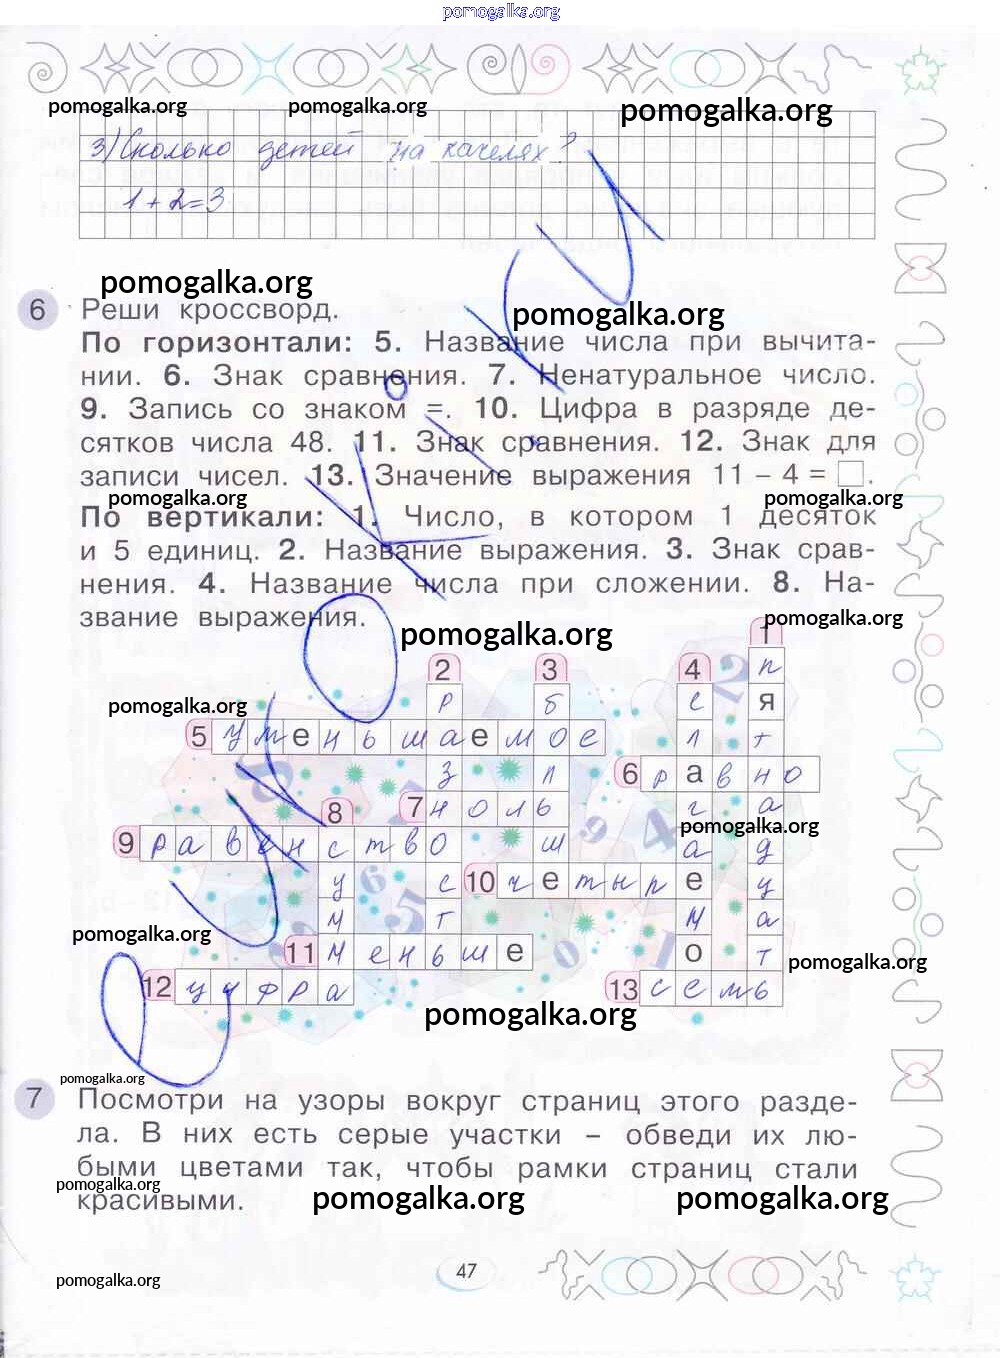 pomogalka.org
pomogalka.org pomogalka.org pomogalka.org
3) Сколько детей на качелях?
1+2=3
pomogalka.org
6 Реши кроссворд.
pomogalka.org
По горизонтали: 5. Название числа при вычита-
нии. 6. Знак сравнения. 7. Ненатуральное число.
9. Запись со знаком =. 10. Цифра в разряде де-
сятков числа 48. 11. Знак сравнения. 12. Знак для
записи чисел. 13. Значение выражения 11 – 4 = □.
pomogalka.org pomogalka.org
По вертикали: 1. Число, в котором 1 десяток
и 5 единиц. 2. Название выражения. 3. Знак срав-
нения. 4. Название числа при сложении. 8. На-
звание выражения.
pomogalka.org pomogalka.org
1
2 3 4 п
pomogalka.org р б с я
5 уменьшаемое л т
з л 6 равно
8 7 ноль г а
pomogalka.org
9 равенство ш а д
у с 10 четыре ц
м т м а
pomogalka.org
11 меньше о т
pomogalka.org
12 цифра 13 семь
pomogalka.org
pomogalka.org
7 Посмотри на узоры вокруг страниц этого разде-
ла. В них есть серые участки – обведи их лю-
быми цветами так, чтобы рамки страниц стали
pomogalka.org pomogalka.org pomogalka.org
красивыми.
47
pomogalka.org pomogalka.org